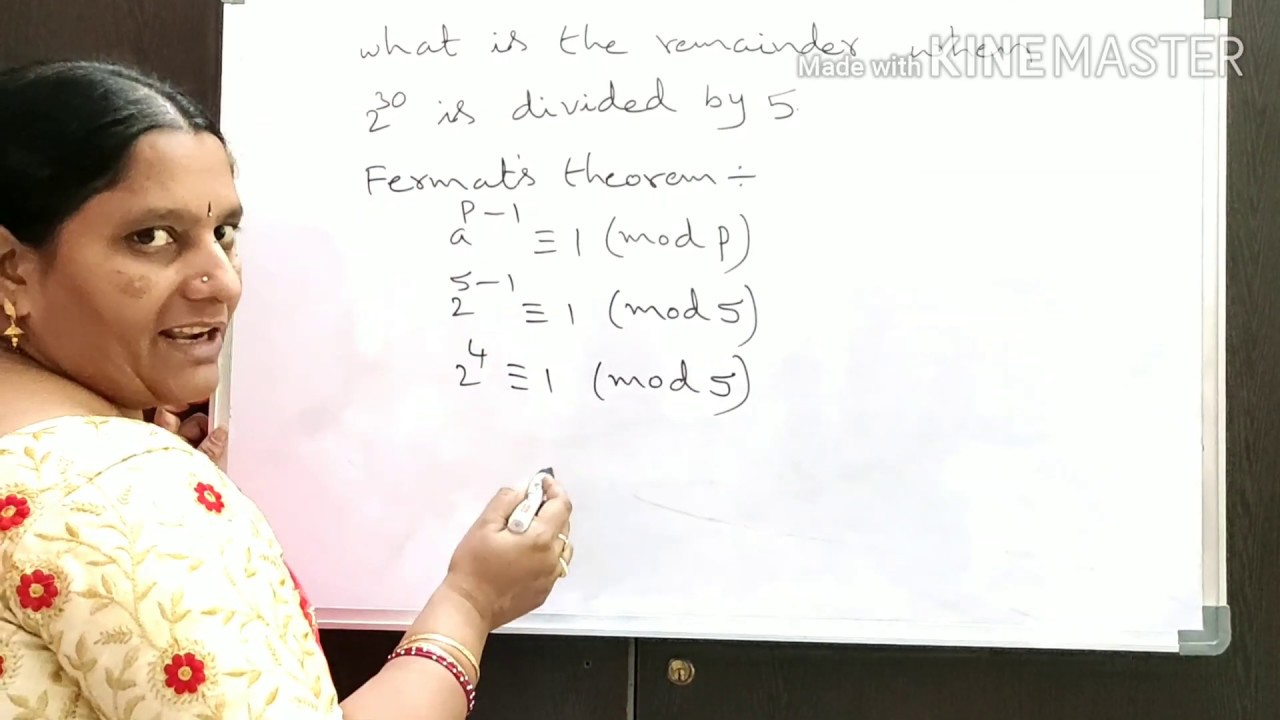 what is the remainder when
Made with KINEMASTER
2^30 is divided by 5
Fermat's theorem ÷
a^p-1 ≡ 1 (mod p)
2^5-1 ≡ 1 (mod 5)
2^4 ≡ 1 (mod 5)